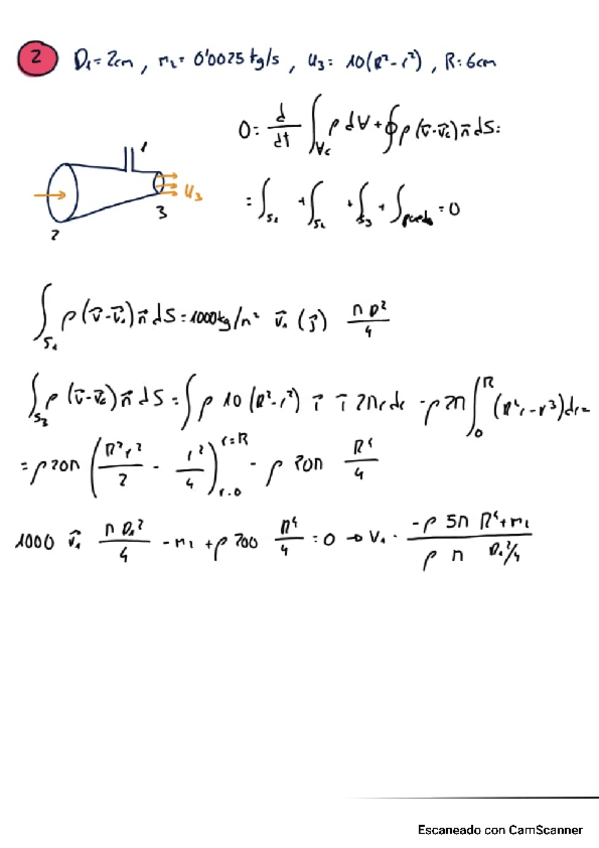 2 D₁= 2cm , m₂ = 0'0025 kg/s , U₃ = 10(R²-r²) , R = 6cm
0 = d/dt ∫_Vc ρ dV + ∮ ρ (v̄-v̄c) n̄ dS =
= ∫_S₁ + ∫_S₂ + ∫_S₃ + ∫ = 0
1
U₃
3
2
∫_S₁ ρ (v̄-v̄c) n̄ dS = 1000 kg/m² v̄₁ (j̄) π D²/4
∫_S₃ ρ (v̄-v̄c) n̄ dS = ∫ ρ 10 (R²-r²) ī ī 2πr dr = ρ 2π ∫₀^R (R²r-r³) dr =
= ρ 20π (R²r²/2 - r²/4)_{r=0}^{r=R} = ρ 20π R⁴/4
1000 v̄₁ π D₁²/4 - m₂ + ρ 20π R⁴/4 = 0 → V₁ = (-ρ 5π R⁴ + m₂)/(ρ π D₁²/4)
Escaneado con CamScanner